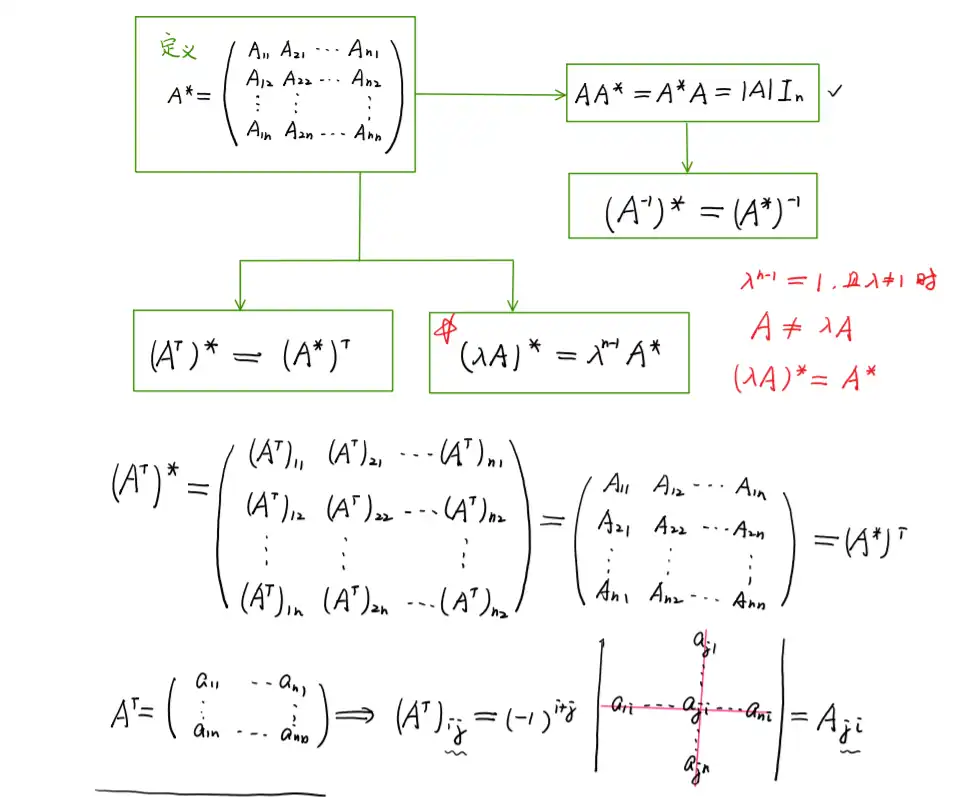 定义
A* = ( A₁₁ A₂₁ ⋯ Aₙ₁
A₁₂ A₂₂ ⋯ Aₙ₂
⋮ ⋮ ⋮
A₁ₙ A₂ₙ ⋯ Aₙₙ )
AA* = A*A = |A|Iₙ ✓
(A⁻¹)* = (A*)⁻¹
(Aᵀ)* = (A*)ᵀ
☆ (λA)* = λⁿ⁻¹A*
λⁿ⁻¹ = 1. 且λ≠1 时
A ≠ λA
(λA)* = A*
(Aᵀ)* = ( (Aᵀ)₁₁ (Aᵀ)₂₁ ⋯ (Aᵀ)ₙ₁
(Aᵀ)₁₂ (Aᵀ)₂₂ ⋯ (Aᵀ)ₙ₂
⋮ ⋮ ⋮
(Aᵀ)₁ₙ (Aᵀ)₂ₙ ⋯ (Aᵀ)ₙ₂ )
= ( A₁₁ A₁₂ ⋯ A₁ₙ
A₂₁ A₂₂ ⋯ A₂ₙ
⋮ ⋮ ⋮
Aₙ₁ Aₙ₂ ⋯ Aₙₙ ) = (A*)ᵀ
Aᵀ = ( a₁₁ ⋯ aₙ₁
⋮ ⋮
a₁ₙ ⋯ aₙₙ ) ⟹ (Aᵀ)ᵢⱼ = (-1)ⁱ⁺ʲ
| aⱼ₁
⋮
a₁ᵢ ⋯ aⱼᵢ ⋯ aₙᵢ
⋮
aⱼₙ | = Aⱼᵢ